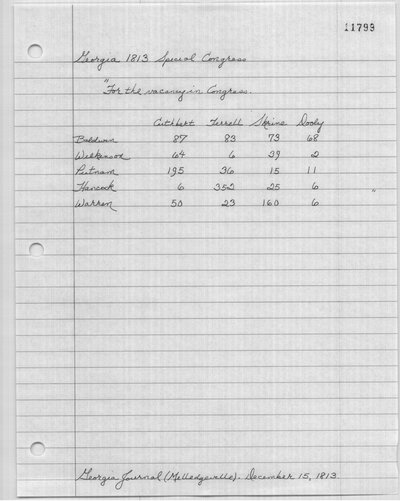 11799
Georgia 1813 Special Congress
"For the vacancy in Congress.
Cuthbert Terrell Skrine Dooly
Baldwin 87 83 73 68
Wilkinson 64 6 39 2
Putnam 195 36 15 11
Hancock 6 352 25 6 "
Warren 50 23 160 6
Georgia Journal (Milledgeville). December 15, 1813.